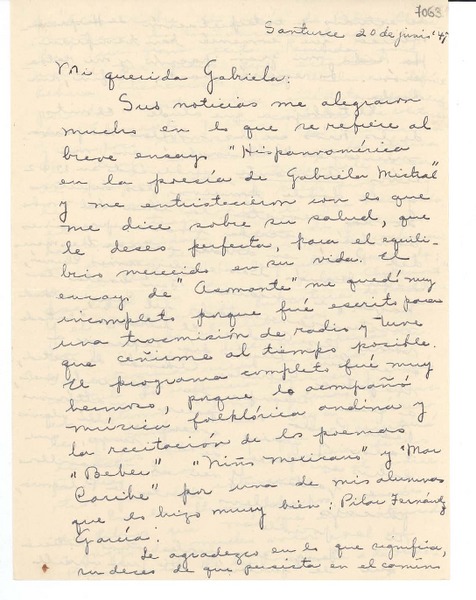 7063
Santurce 20 de junio '47
Mi querida Gabriela:
Sus noticias me alegraron
mucho en lo que se refiere al
breve ensayo "Hispanoamérica
en la poesía de Gabriela Mistral"
y me entristecieron con lo que
me dice sobre su salud, que
le deseo perfecta, para el equili-
brio merecido en su vida. El
ensayo de "Asomante" me quedó muy
incompleto porque fué escrito para
una trasmisión de radio y tuve
que ceñirme al tiempo posible.
El programa completo fué muy
hermoso, porque lo acompañó
música folklórica andina y
la recitación de los poemas
"Beber" "Niño mexicano" y "Mar
Caribe" por una de mis alumnas
que lo hizo muy bien: Pilar Fernández
García.
Le agradezco en lo que significa,
su deseo de que persista en el camino